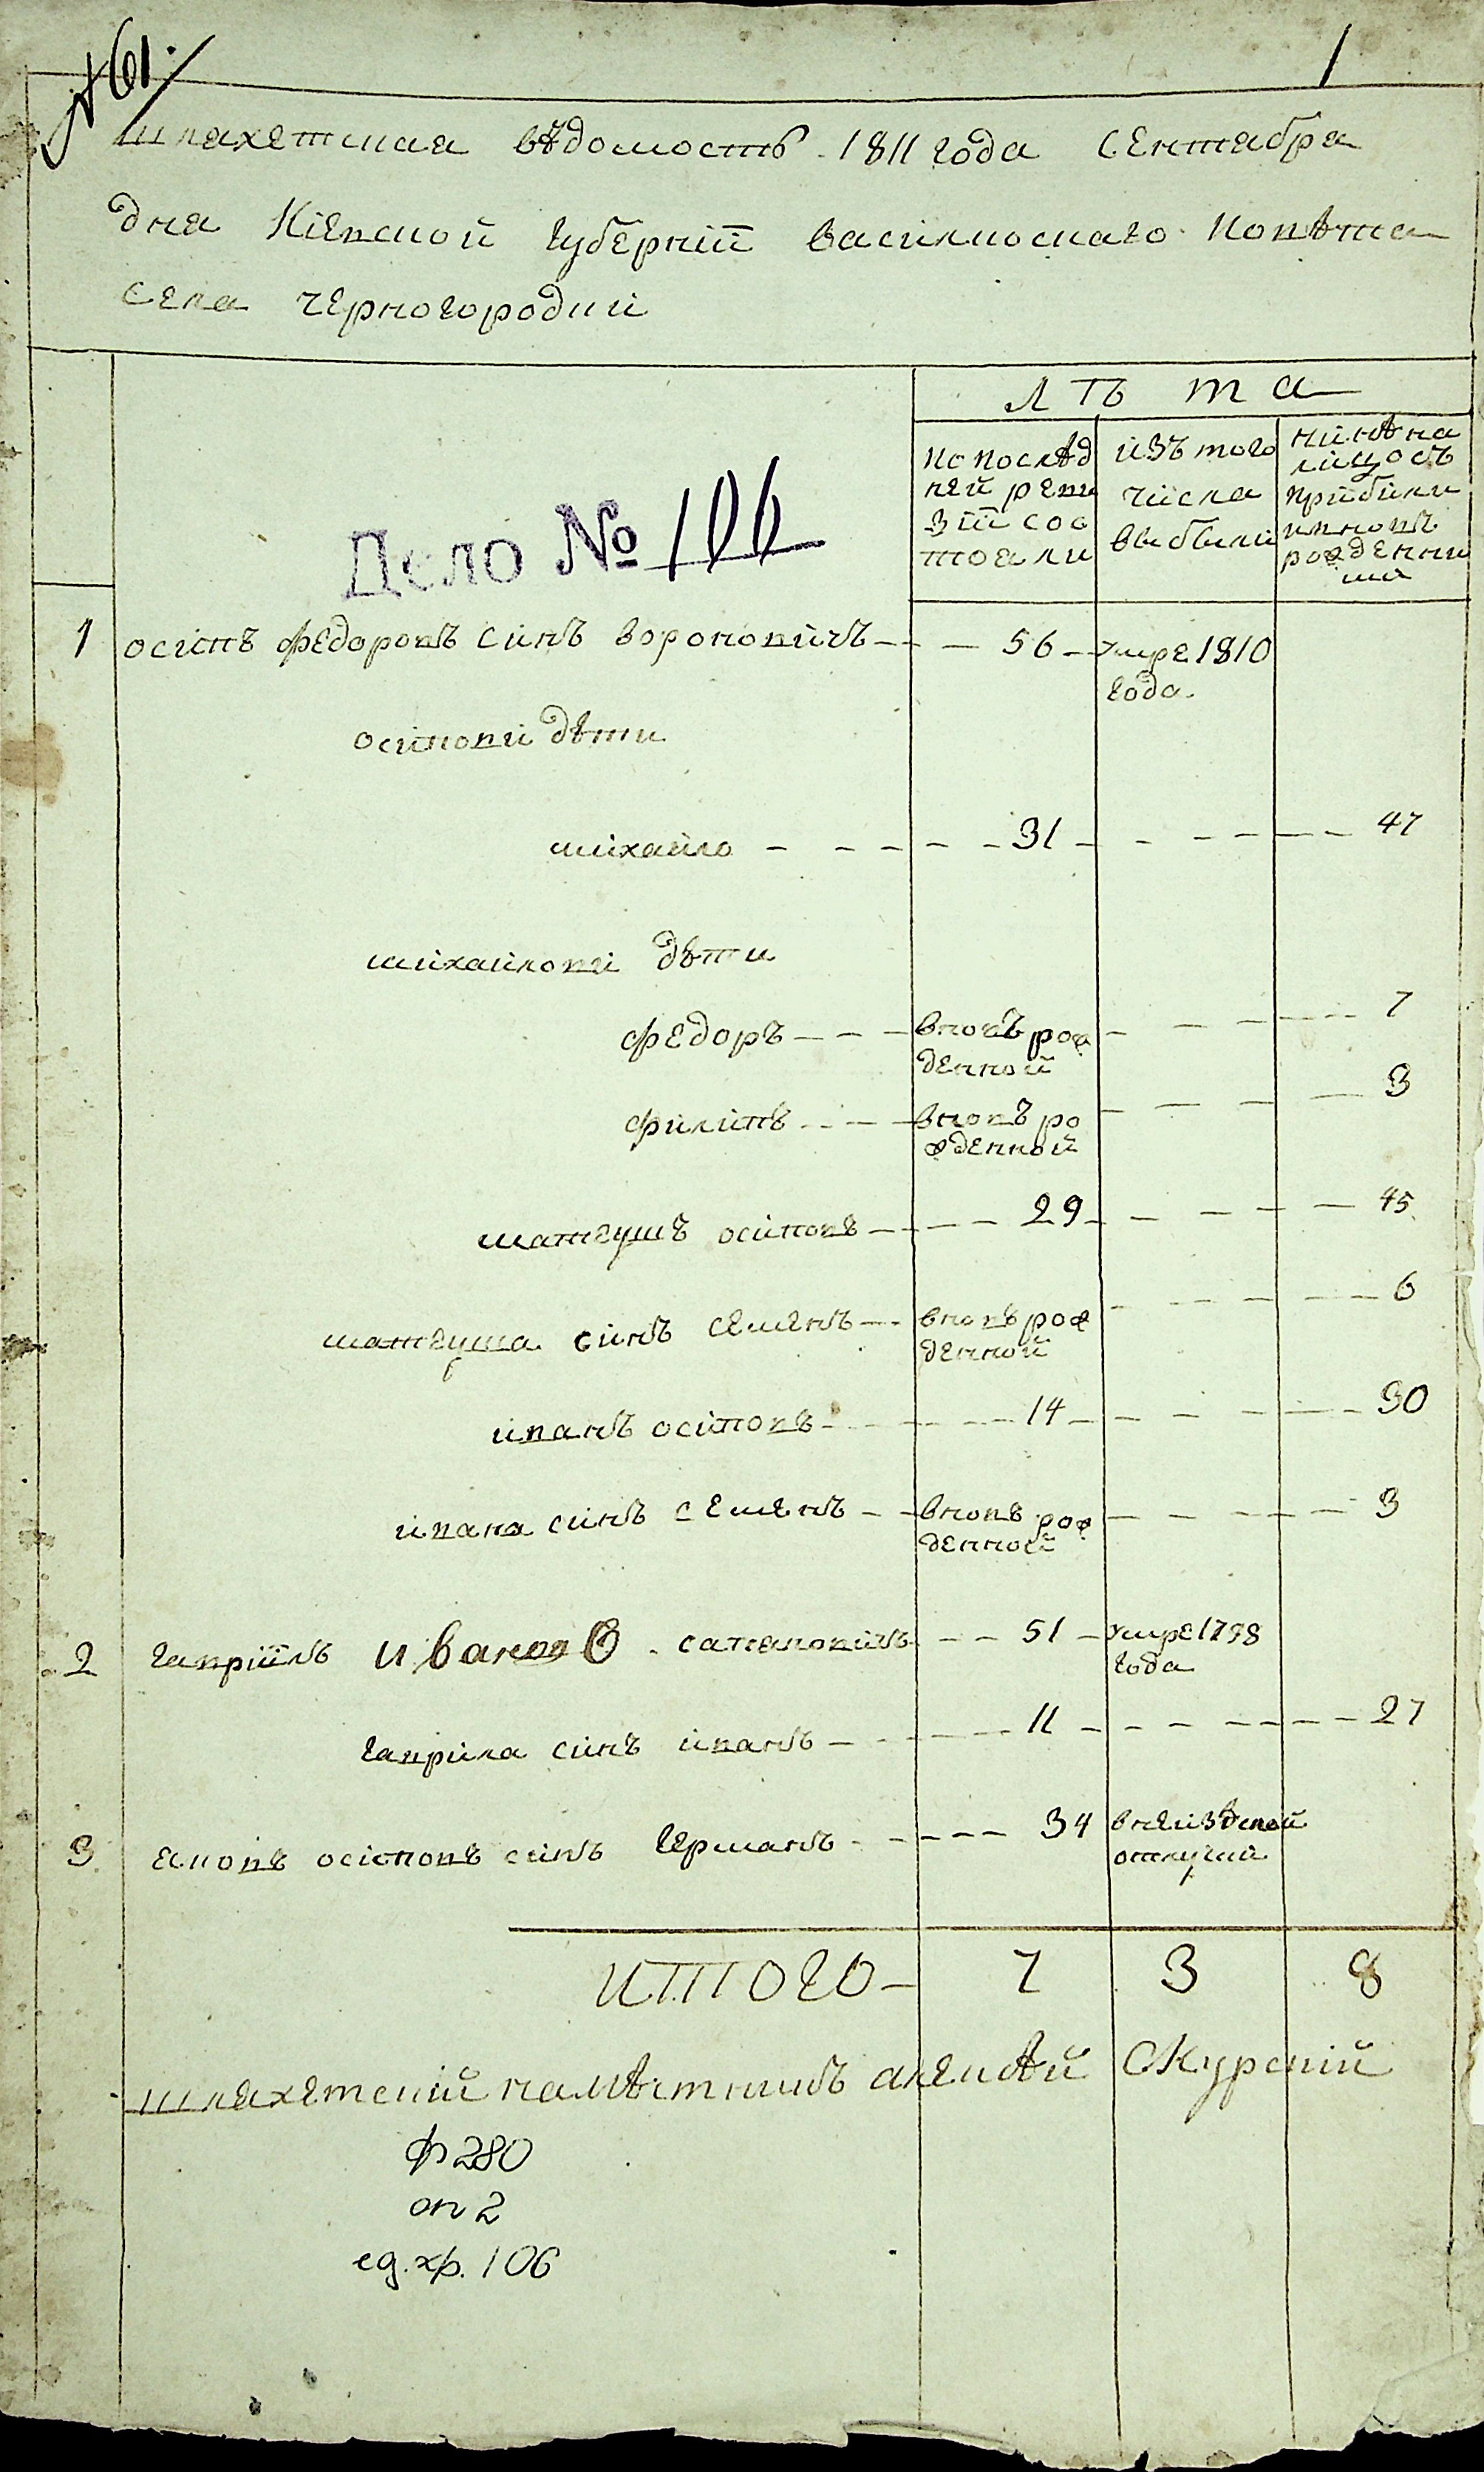 № 61.
1
шляхетская вѣдомость 1811 года сентября
дня Кіевской губерніи василкоскаго повѣта
села черногородки
лѣта
по послѣд
ней реви
зіи сос
тояли
изъ того
числа
выбыли
нинѣ на
лицо съ
прибили
вновъ
рожденни
ми
Дело № 106
1 осипъ федоровъ синъ вороновичъ — 56 — умре 1810
года.
осипови дѣти
михайло — 31 — 47
михайлови дѣти
федоръ — вновъ рож
денной — 7
филипъ — вновъ ро
жденной — 3
матеушъ осиповъ — 29 — 45
матеуша синъ семенъ — вновъ рож
денной — 6
иванъ осиповъ — 14 — 30
ивана синъ семенъ — вновъ рож
денной — 3
2 гавріилъ Иванов сатановичъ — 51 — умре 1798
года
гаврила синъ иванъ — 11 — 27
3 яковъ осиповъ синъ германъ — 34 внеизвѣсной
отлучки
ИТОГО — 7 3 8
шляхетскій намѣстникъ алексѣй Скурскій
ф 280
оп 2
ед. хр. 106